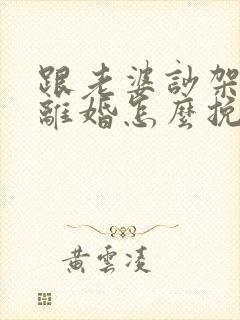 跟老婆訬架
離婚怎麼挽
黃雲凌